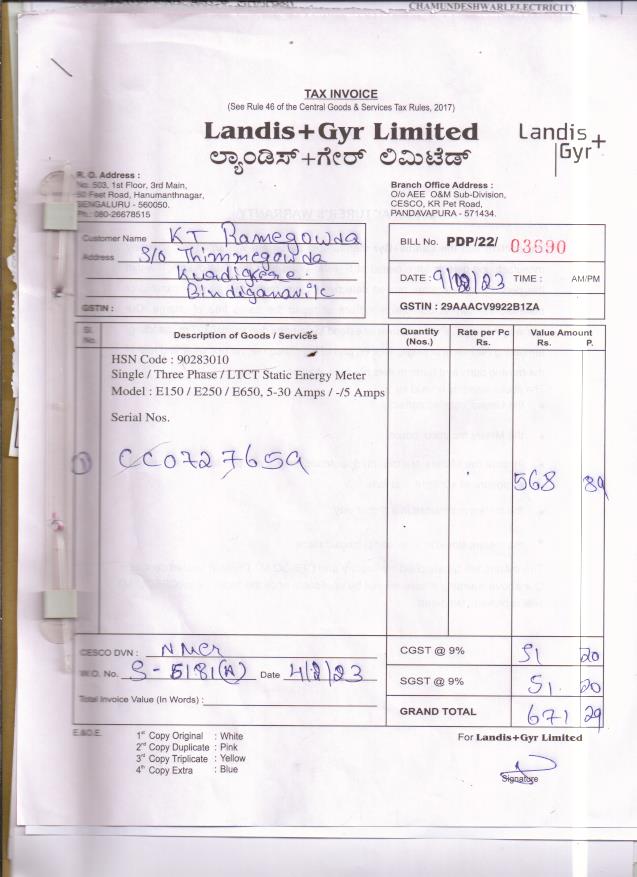 CHAMUNDESHWARI ELECTRICITY
TAX INVOICE
(See Rule 46 of the Central Goods & Services Tax Rules, 2017)
Landis+Gyr Limited
ಲ್ಯಾಂಡಿಸ್+ಗೇರ್ ಲಿಮಿಟೆಡ್
Landis+
Gyr
R. O. Address :
No. 503, 1st Floor, 3rd Main,
50 Feet Road, Hanumanthnagar,
BENGALURU - 560050.
Ph.: 080-26678515
Branch Office Address :
O/o AEE O&M Sub-Division,
CESCO, KR Pet Road,
PANDAVAPURA - 571434.
Customer Name KT Ramegowda
Address S/o Thimmegowda
Bindiganavile
GSTIN :
BILL No. PDP/22/ 03690
DATE : 9/02/23 TIME : AM/PM
GSTIN : 29AAACV9922B1ZA
Sl. No. Description of Goods / Services Quantity (Nos.) Rate per Pc Rs. Value Amount Rs. P.
HSN Code : 90283010
Single / Three Phase / LTCT Static Energy Meter
Model : E150 / E250 / E650, 5-30 Amps / -/5 Amps
Serial Nos.
1 CC0727659 568 89
CESCO DVN :
W.O. No. S-5181(A) Date 4/2/23
Total Invoice Value (In Words) :
CGST @ 9% 51 20
SGST @ 9% 51. 20
GRAND TOTAL 671 29
E.&O.E.
1st Copy Original : White
2nd Copy Duplicate : Pink
3rd Copy Triplicate : Yellow
4th Copy Extra : Blue
For Landis+Gyr Limited
Signature